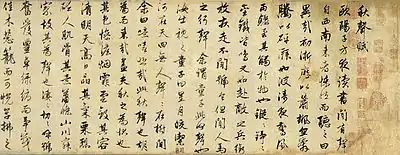 秋聲賦
歐陽子方夜讀書聞有聲
自西南來者悚然而聽之曰
異哉初淅瀝以蕭颯忽奔
騰而砰湃如波濤夜驚風
雨驟至其觸於物也鏦鏦錚
錚金鐵皆鳴又如赴敵之兵銜
枚疾走不聞號令但聞人馬
之行聲余謂童子此何聲也
汝出視之童子曰星月皎潔明
河在天四無人聲聲在樹間
余曰噫嘻悲哉此秋聲也胡
為乎來哉蓋夫秋之為狀也
其色慘淡煙霏雲斂其容
清明天高日晶其氣慄冽
砭人肌骨其意蕭條山川寂
寥故其為聲也淒淒切切呼號
奮發豐草綠縟而爭茂
佳木蔥蘢而可悅草拂之